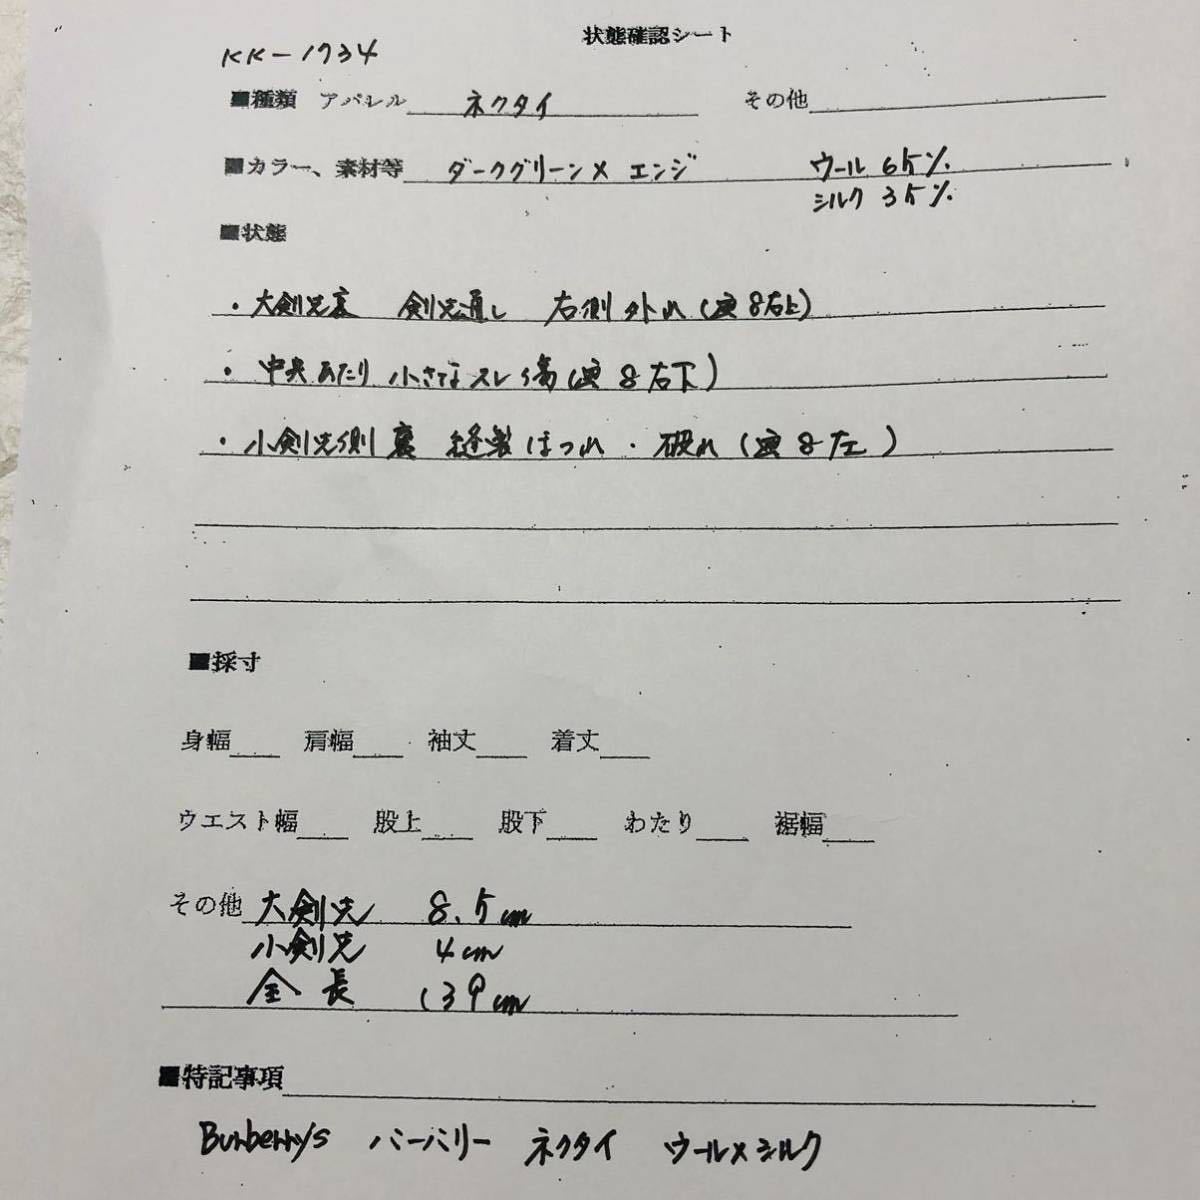 状態確認シート
KK-1734
■種類 アパレル ネクタイ その他
■カラー、素材等 ダークグリーン×エンジ ウール 65%
シルク 35%
■状態
・大剣先裏 剣先通し 右側外れ(画8右上)
・中央あたり 小さなスレ傷(画8右下)
・小剣先側裏 縫製ほつれ・破れ(画8左)
■採寸
身幅 肩幅 袖丈 着丈
ウエスト幅 股上 股下 わたり 裾幅
その他 大剣先 8.5cm
小剣先 4cm
全長 139cm
■特記事項
Burberrys バーバリー ネクタイ ウール×シルク